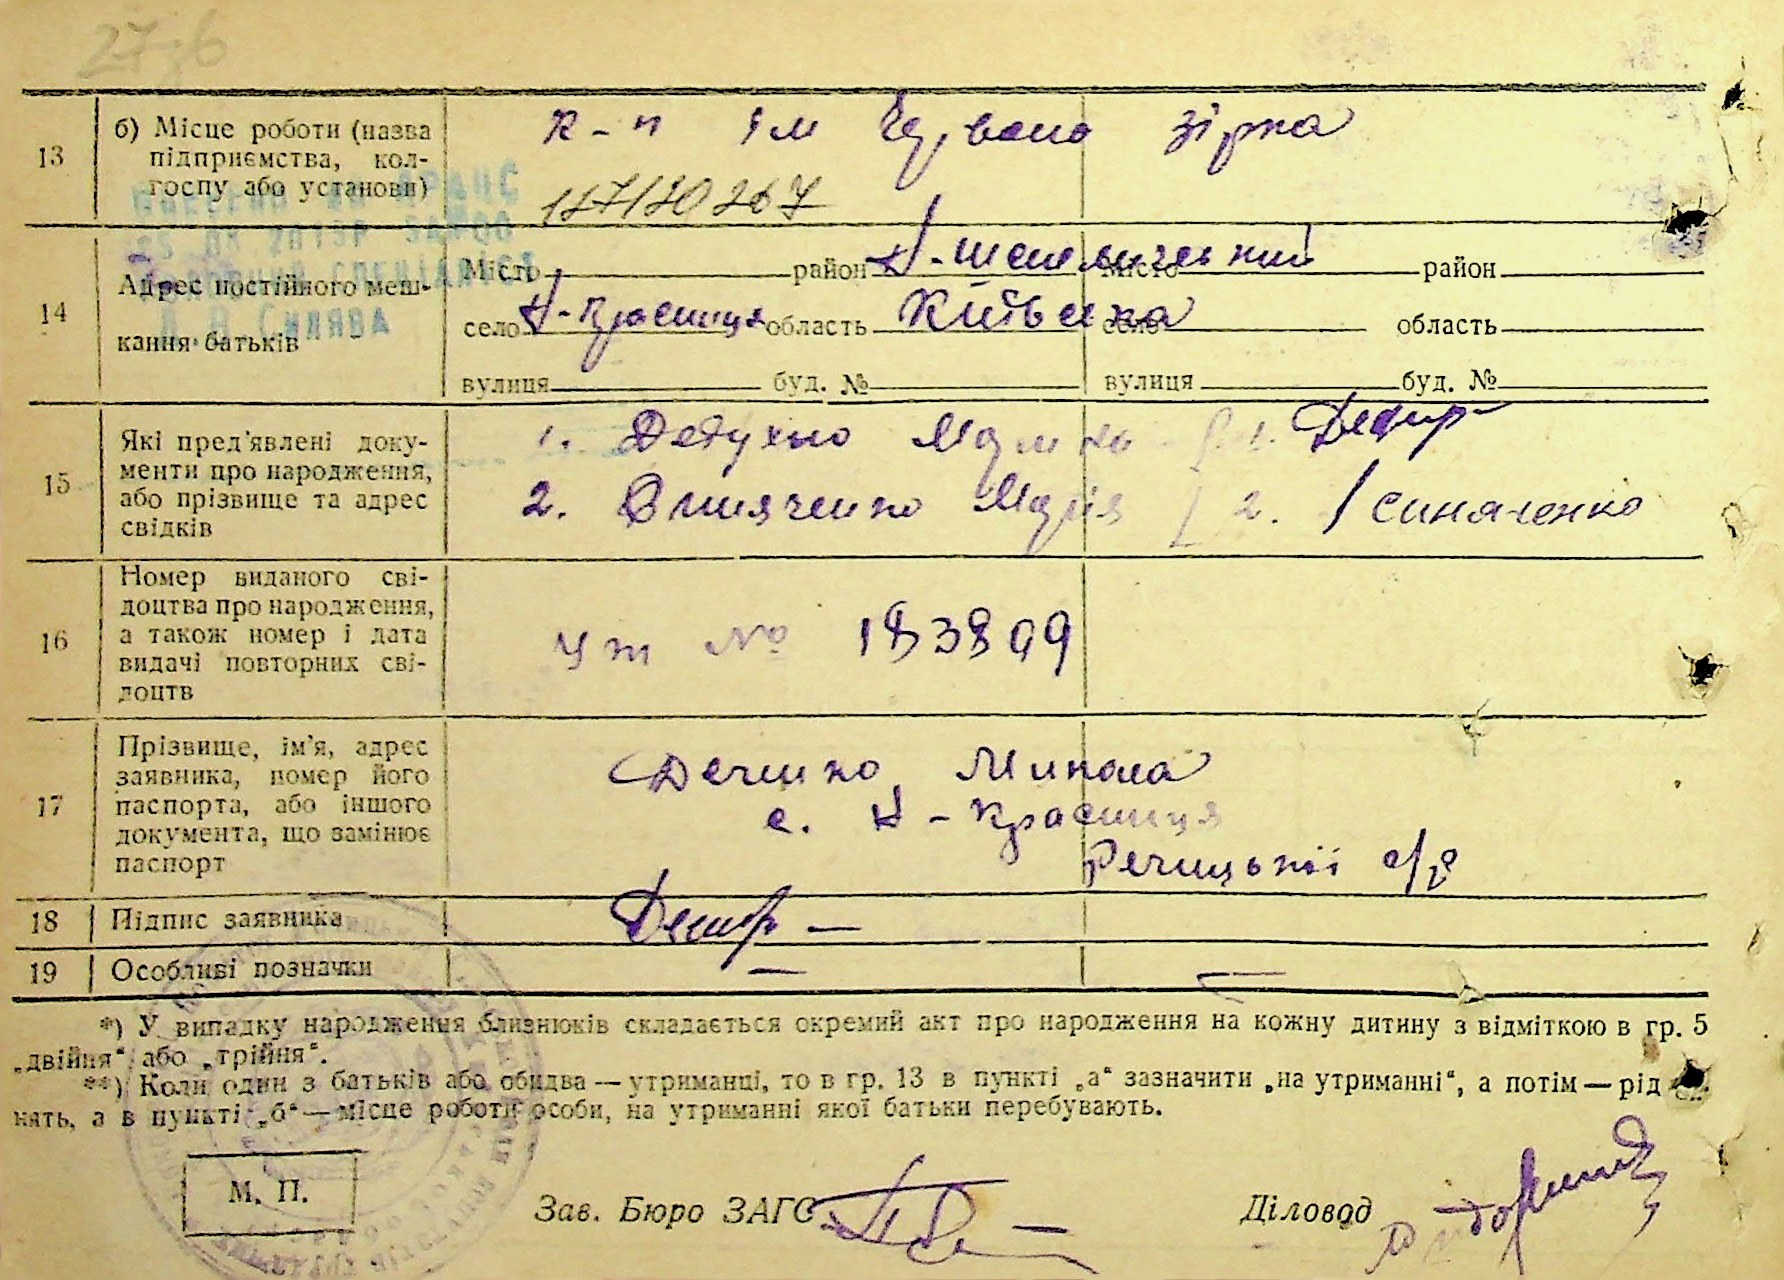 27.б
13
б) Місце роботи (назва
підприємства, кол-
госпу або установи)
к-п ім Червона зірка
117/20267
14
Адрес постійного меш-
кання батьків
Місто район Н-Шепеличський місто район
село Н-Красниця область Київська село область
вулиця буд. № вулиця буд. №
15
Які пред'явлені доку-
менти про народження,
або прізвище та адрес
свідків
1. 1.
2. Марія 2. Синяченко
16
Номер виданого сві-
доцтва про народження,
а також номер і дата
видачі повторних сві-
доцтв
№ 183899
17
Прізвище, ім'я, адрес
заявника, номер його
паспорта, або іншого
документа, що замінює
паспорт
Микола
с. Н-Красниця
Речицької с/р
18 Підпис заявника
19 Особливі позначки — —
*) У випадку народження близнюків складається окремий акт про народження на кожну дитину з відміткою в гр. 5
„двійня“ або „трійня“.
**) Коли один з батьків або обидва — утриманці, то в гр. 13 в пункті „а“ зазначити „на утриманні“, а потім — рід
нять, а в пункті „б“ — місце роботи особи, на утриманні якої батьки перебувають.
М. П.
Зав. Бюро ЗАГС Діловод